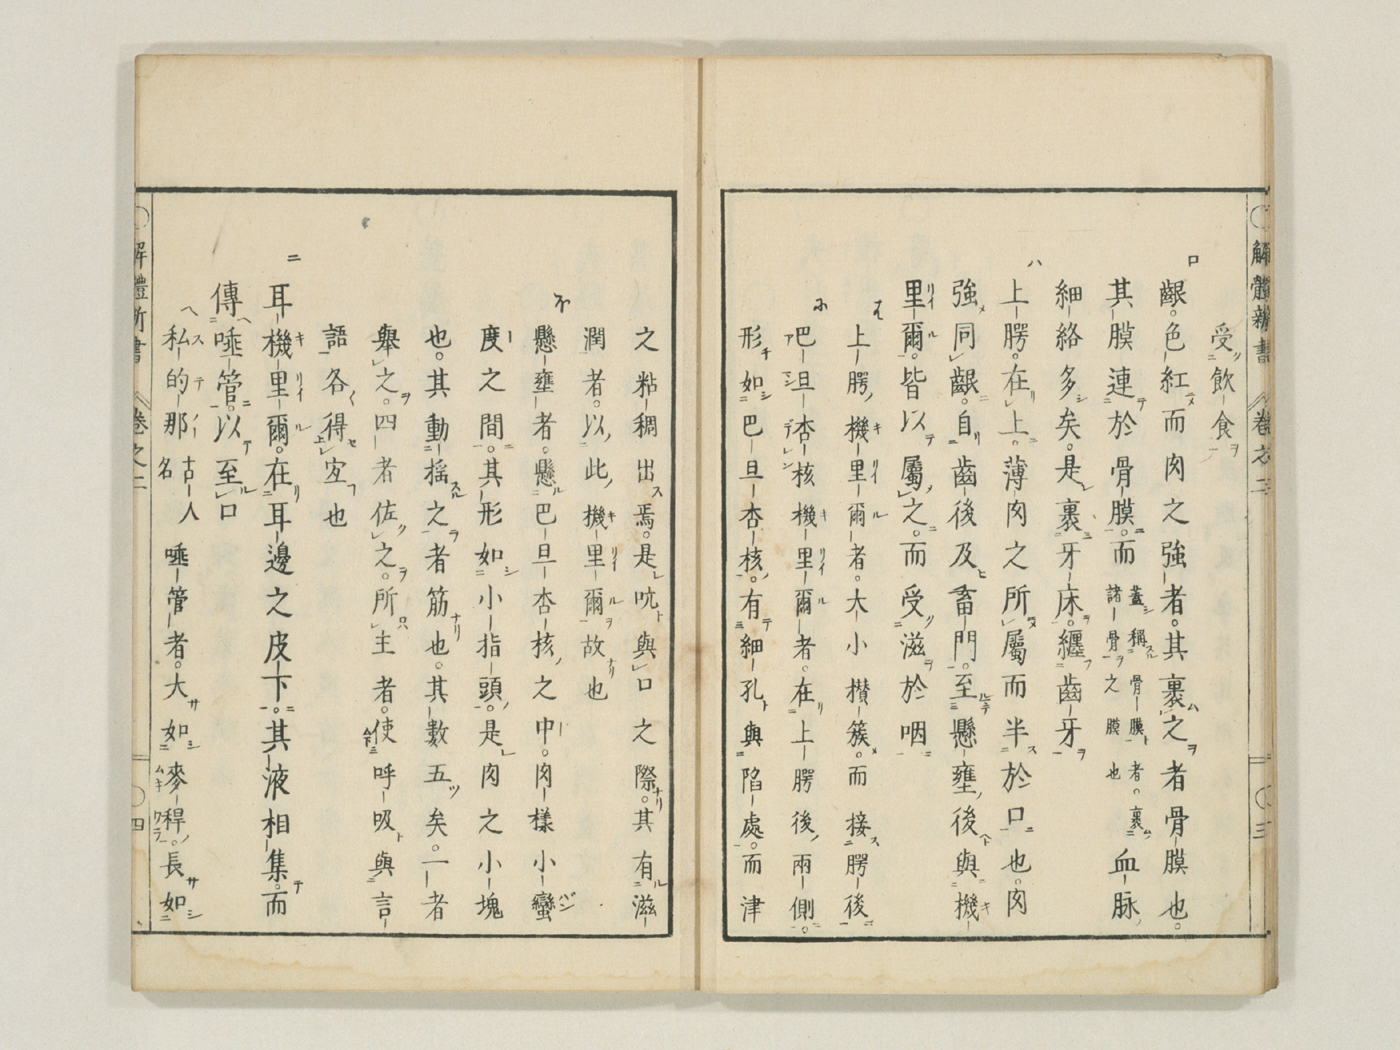 解體新書 卷之二 三
受飮食
齦。色紅而肉之強者。其裏之者骨膜也。
其膜連於骨膜。而蓋稱骨膜者。裏諸骨之膜也血脉
細絡多矣。是裏牙床。纏齒牙
上腭。在上。薄肉之所屬而半於口也。肉
強同齦。自齒後及畜門。至懸壅後與機
里爾。皆以屬之。而受滋於咽
上腭機里爾者。大小攅簇。而接腭後
巴旦杏核機里爾者。在上腭後兩側。
形如巴旦杏核。有細孔與陷處。而津
之粘稠出焉。是吭與口之際。其有滋
潤者。以此機里爾故也
懸壅者。懸巴旦杏核之中。肉樣小蠻
度之間。其形如小指頭。是肉之小塊
也。其動搖之者筋也。其數五矣。一者
舉之。四者佐之。所主者。使呼吸與言
語各得宐也
耳機里爾。在耳邊之皮下。其液相集。而
傳唾管。以至口
私的那 古人名 唾管者。大如麥稈。長如
解體新書 卷之二 四